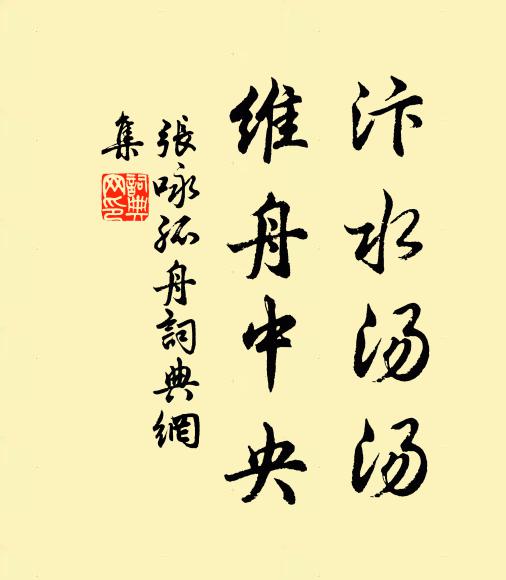 汴水汤汤
维舟中央
張咏孤舟詞典網
集
詞典
网印